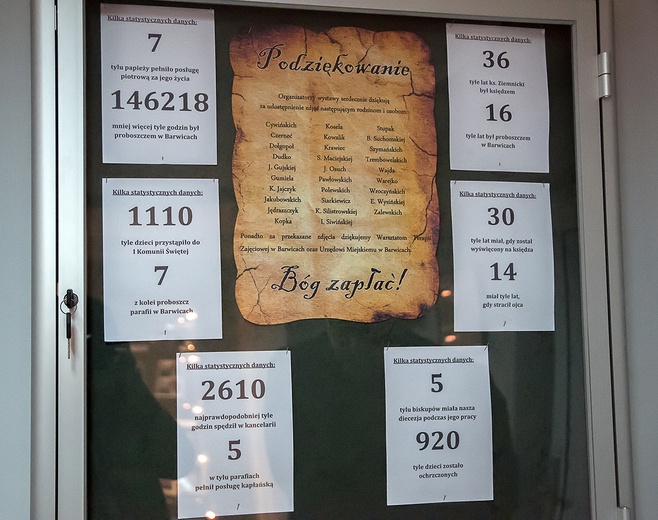 Kilka statystycznych danych:
7
tylu papieży pełniło posługę
piotrową za jego życia
146218
mniej więcej tyle godzin był
proboszczem w Barwicach
Kilka statystycznych danych:
1110
tyle dzieci przystąpiło do
I Komunii Świętej
7
z kolei proboszcz
parafii w Barwicach
Kilka statystycznych danych:
2610
najprawdopodobniej tyle
godzin spędził w kancelarii
5
w tylu parafiach
pełnił posługę kapłańską
Podziękowanie
Organizatorzy wystawy serdecznie dziękują
za udostępnienie zdjęć następującym rodzinom i osobom:
Cywińskich Kosela Stupak
Czerneć Kowalik B. Suchomskiej
Dołgopoł Krawiec Szymańskich
Dudko S. Maciejskiej Trembowelskich
J. Gujskiej J. Osuch Wajda
Gumiela Pawłowskich Warejko
K. Jajczyk Polewskich Wroczyńskich
Jakubowskich Siarkiewicz E. Wysińskiej
Jędraszczyk K. Silistrowskiej Zalewskich
Kopka I. Siwińskiej
Ponadto za przekazane zdjęcia dziękujemy Warsztatom Terapii
Zajęciowej w Barwicach oraz Urzędowi Miejskiemu w Barwicach.
Bóg zapłać!
Kilka statystycznych danych:
36
tyle lat ks. Ziemnicki
był księdzem
16
tyle lat był proboszczem
w Barwicach
Kilka statystycznych danych:
30
tyle lat miał, gdy został
wyświęcony na księdza
14
miał tyle lat,
gdy stracił ojca
Kilka statystycznych danych:
5
tylu biskupów miała nasza
diecezja podczas jego pracy
920
tyle dzieci zostało
ochrzczonych